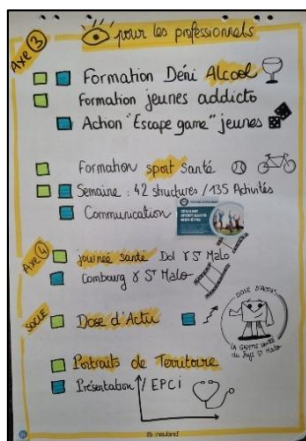 Axe 3
pour les professionnels
Formation Déni Alcool
Formation jeunes addicto
Action "Escape game" jeunes
Formation sport Santé
Semaine : 42 structures / 135 Activités
Communication
Axe 4
journée santé Dol & St Malo
Combourg & St Malo
SOCLE
Dose d'Actu
DOSE D'ACTU
Portraits de Territoire
Présentation / EPCi